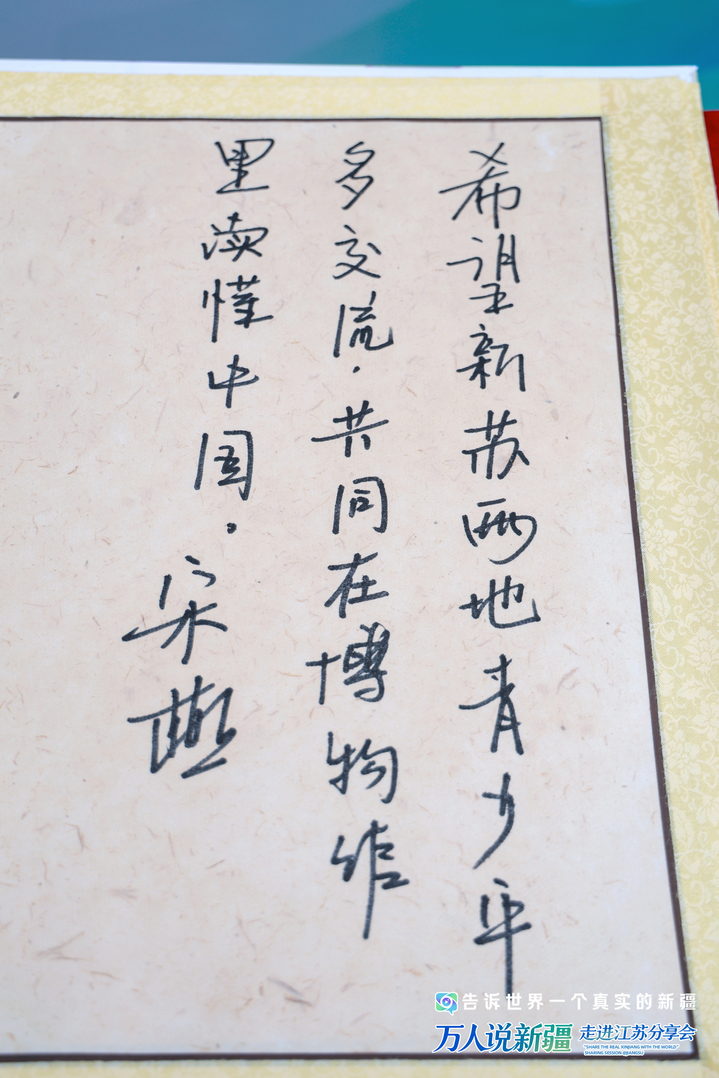 希望新苏两地青少年
多交流，共同在博物馆
里读懂中国。
告诉世界一个真实的新疆
万人说新疆 走进江苏分享会
"SHARE THE REAL XINJIANG WITH THE WORLD"
SHARING SESSION (JIANGSU)